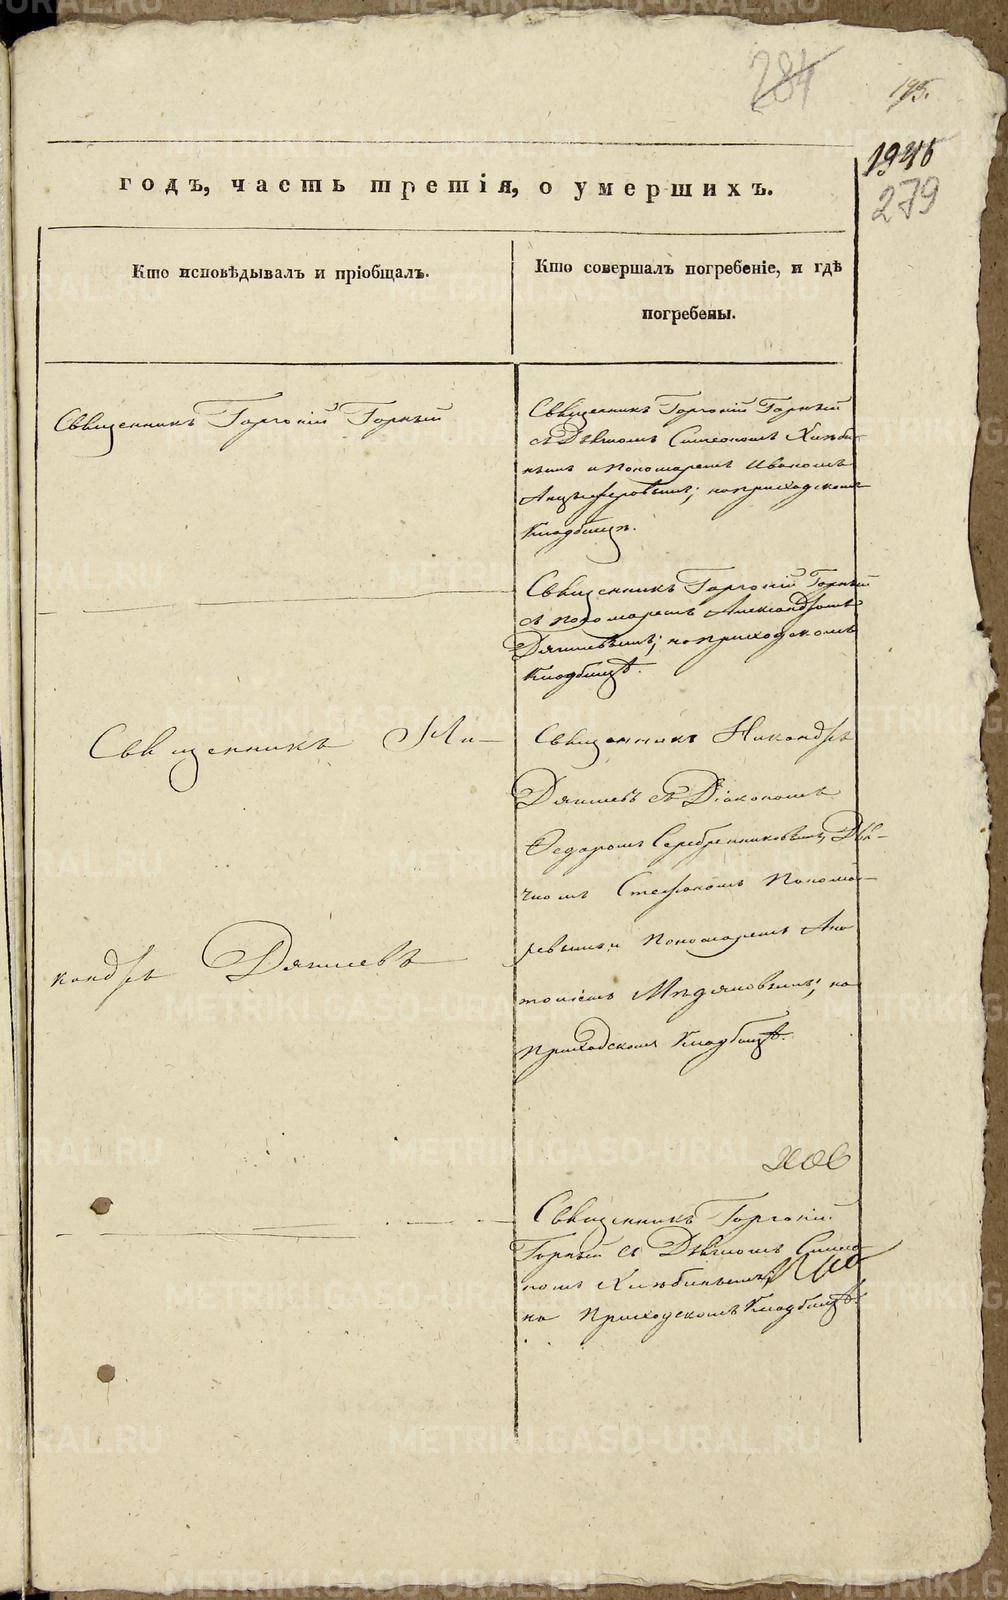 284
195.
1946
279
годъ, часть третія, о умершихъ.
Кто исповѣдывалъ и пріобщалъ.
Кто совершалъ погребеніе, и гдѣ
погребены.
Священникъ Горгоній Горный
Священникъ Горгоній Горный
съ Дьячкомъ Симеономъ Хлѣби-
нымъ и Пономаремъ Иваномъ
на приходскомъ
Кладбищѣ.
Священникъ Горгоній Горный
съ пономаремъ Александромъ
Дягилевымъ; на приходскомъ
Кладбищѣ.
Священникъ Ни-
кандръ Дягилевъ
Священникъ Никандръ
Дягилевъ съ Діакономъ
Ѳедоромъ Серебренниковымъ, Дья-
чкомъ Стефаномъ Понома-
ревымъ и Пономаремъ Ана-
толіемъ на
Приходскомъ Кладбищѣ.
Священникъ Горгоній
Горный съ Дьячкомъ Симео-
номъ Хлѣбинымъ;
на Приходскомъ Кладбищѣ.
METRIKI.GASO-URAL.RU